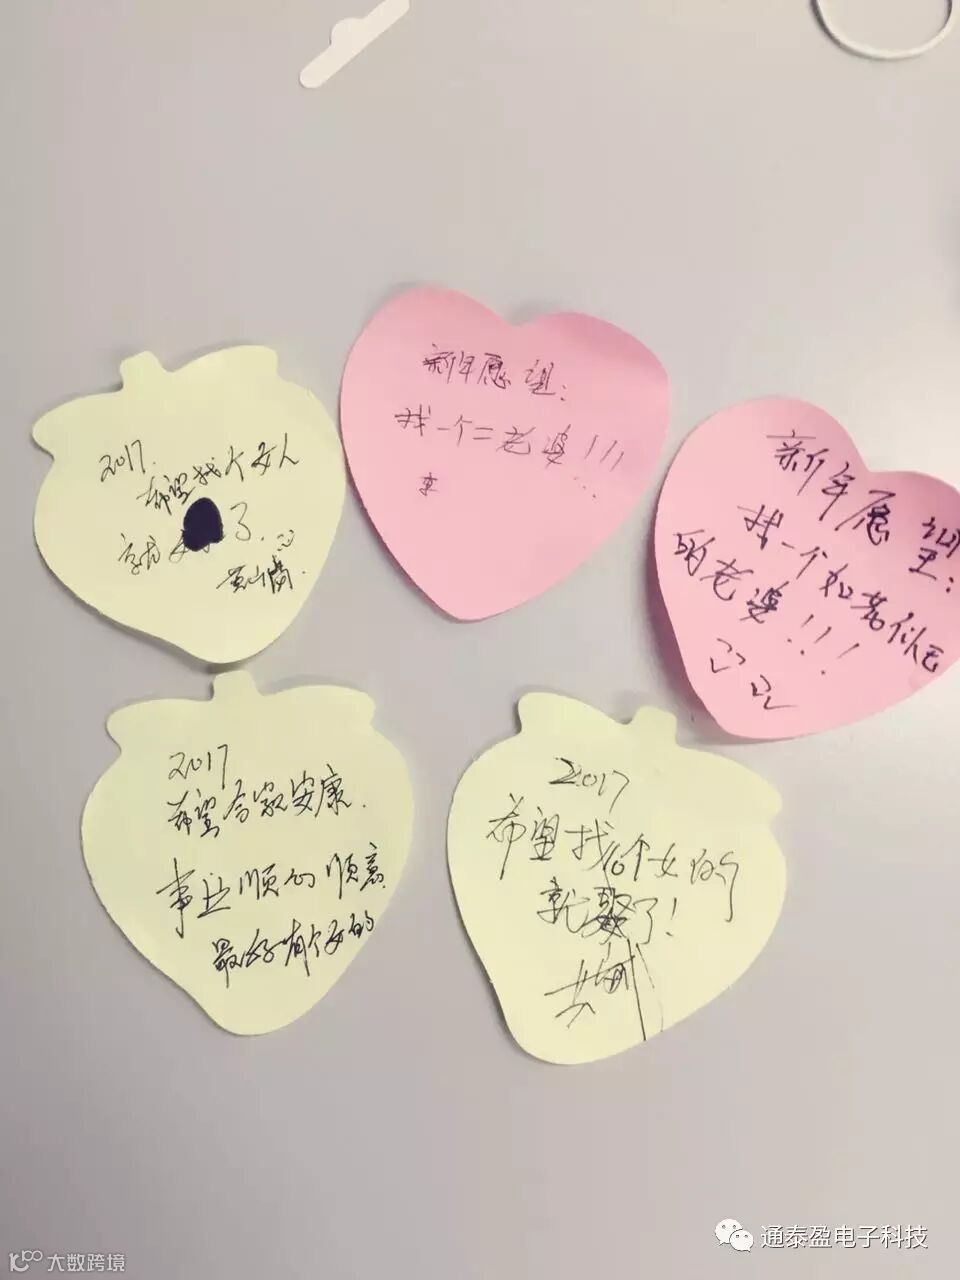 2017.
希望找个女人
就 了.
新年愿望：
找一个二老婆!!!
2017
希望合家安康.
事业顺心顺意
最好有个女的
2017
希望找个女的
就娶了!
新年愿望：
找一个如花似玉
的老婆!!!
通泰盈电子科技
大数跨境